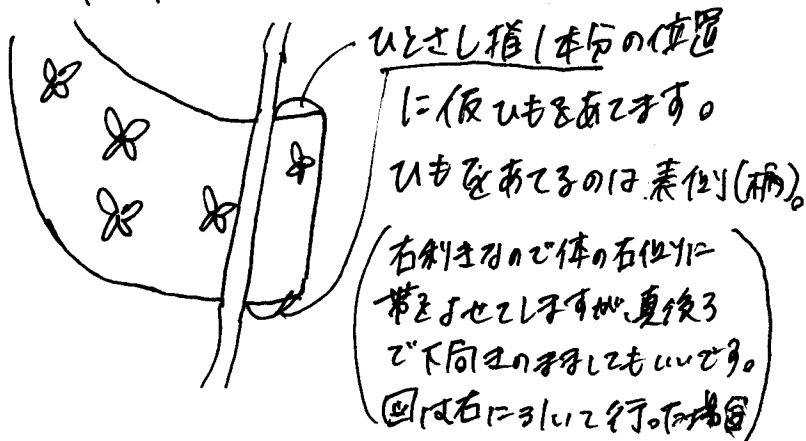 ひとさし指1本分の位置
に仮ひもをあてます。
ひもをあてるのは表側(柄)。
(右利きなので体の右側に
帯をよせてしますが、真後ろ
で下向きのまましてもいいです。
図は右にひいて行った場合)